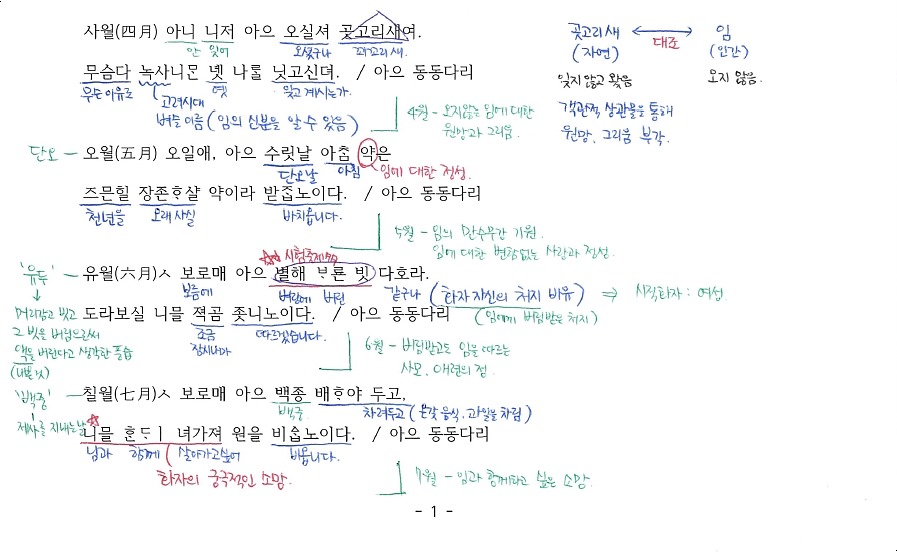 사월(四月) 아니 니저 아으 오실셔 곳고리새여.
안 잊어 오셨구나 꾀꼬리 새.
곳고리새 ↔ 임
(자연) 대조 (인간)
잊지 않고 왔음 오지 않음.
객관적 상관물을 통해
원망, 그리움 부각.
무슴다 녹사니ᄆᆞᆫ 녯 나ᄅᆞᆯ 닛고신뎌. / 아으 동동다리
무슨 이유로 옛 잊고 계시는가.
고려시대
벼슬 이름 (임의 신분을 알 수 있음)
4월 - 오지않는 임에 대한
원망과 그리움.
단오 - 오월(五月) 오일애, 아으 수릿날 아ᄎᆞᆷ 약은
단오날 아침 임에 대한 정성.
즈믄힐 장존ᄒᆞ샬 약이라 받ᄌᆞᆸ노이다. / 아으 동동다리
천년을 오래 사실 바치옵니다.
5월 - 임의 만수무강 기원.
임에 대한 변함없는 사랑과 정성.
시험출제
'유두' - 유월(六月)ㅅ 보로매 아으 별해 ᄇᆞ룐 빗 다호라.
보름에 벼랑에 버린 같구나 (화자 자신의 처지 비유) ⇒ 시적화자 : 여성
(임에게 버림받은 처지)
머리감고 빗고
그 빗을 버림으로써
액을 버린다고 생각한 풍습
(나쁜 것)
도라보실 니믈 젹곰 좃니노이다. / 아으 동동다리
조금 따르겠습니다.
잠시나마
6월 - 버림받고도 임을 따르는
사모, 애련의 정.
'백중' - 칠월(七月)ㅅ 보로매 아으 백종 배ᄒᆞ야 두고,
제사를 지내는 날
백중 차려두고 (온갖 음식, 과일을 차림)
니믈 ᄒᆞᆫᄃᆡ 녀가져 원을 비ᄉᆞᆸ노이다. / 아으 동동다리
님과 함께 살아가고싶어 비옵니다.
화자의 궁극적인 소망.
7월 - 임과 함께하고 싶은 소망.
- 1 -